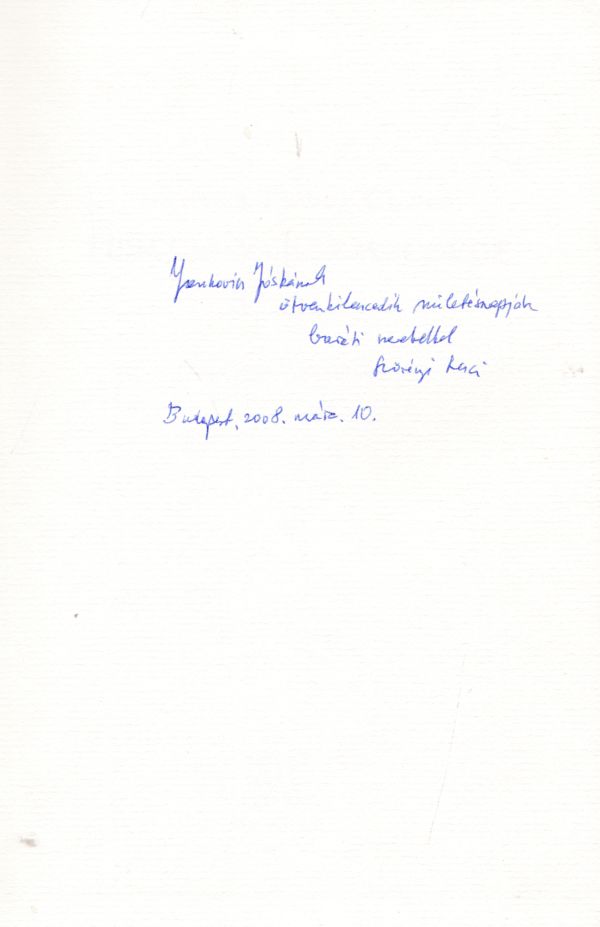 Jankovics Jóskának
ötvenkilencedik születésnapján
baráti szeretettel
Szörényi Laci
Budapest, 2008. márc. 10.